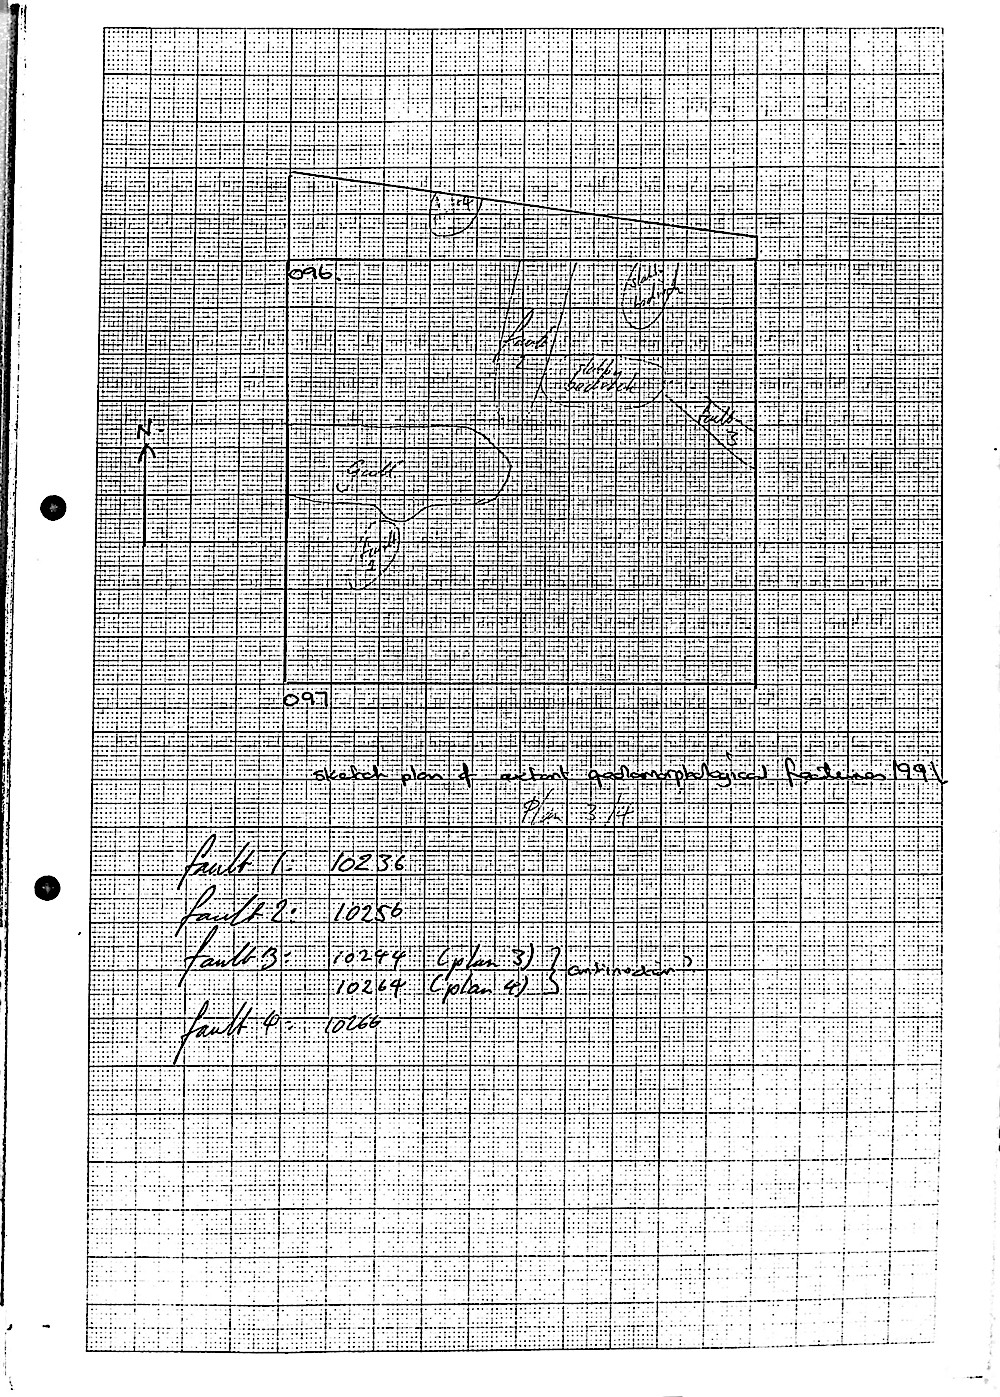 096.
fault
2
slabby
bedrock
fault
3
N.
Gull
fault
1
097
sketch plan of extant geomorphological features 1991
Plan 3/4
fault 1: 10236
fault 2: 10256
fault 3: 10244 (plan 3)
10264 (plan 4)
fault 4: 10266